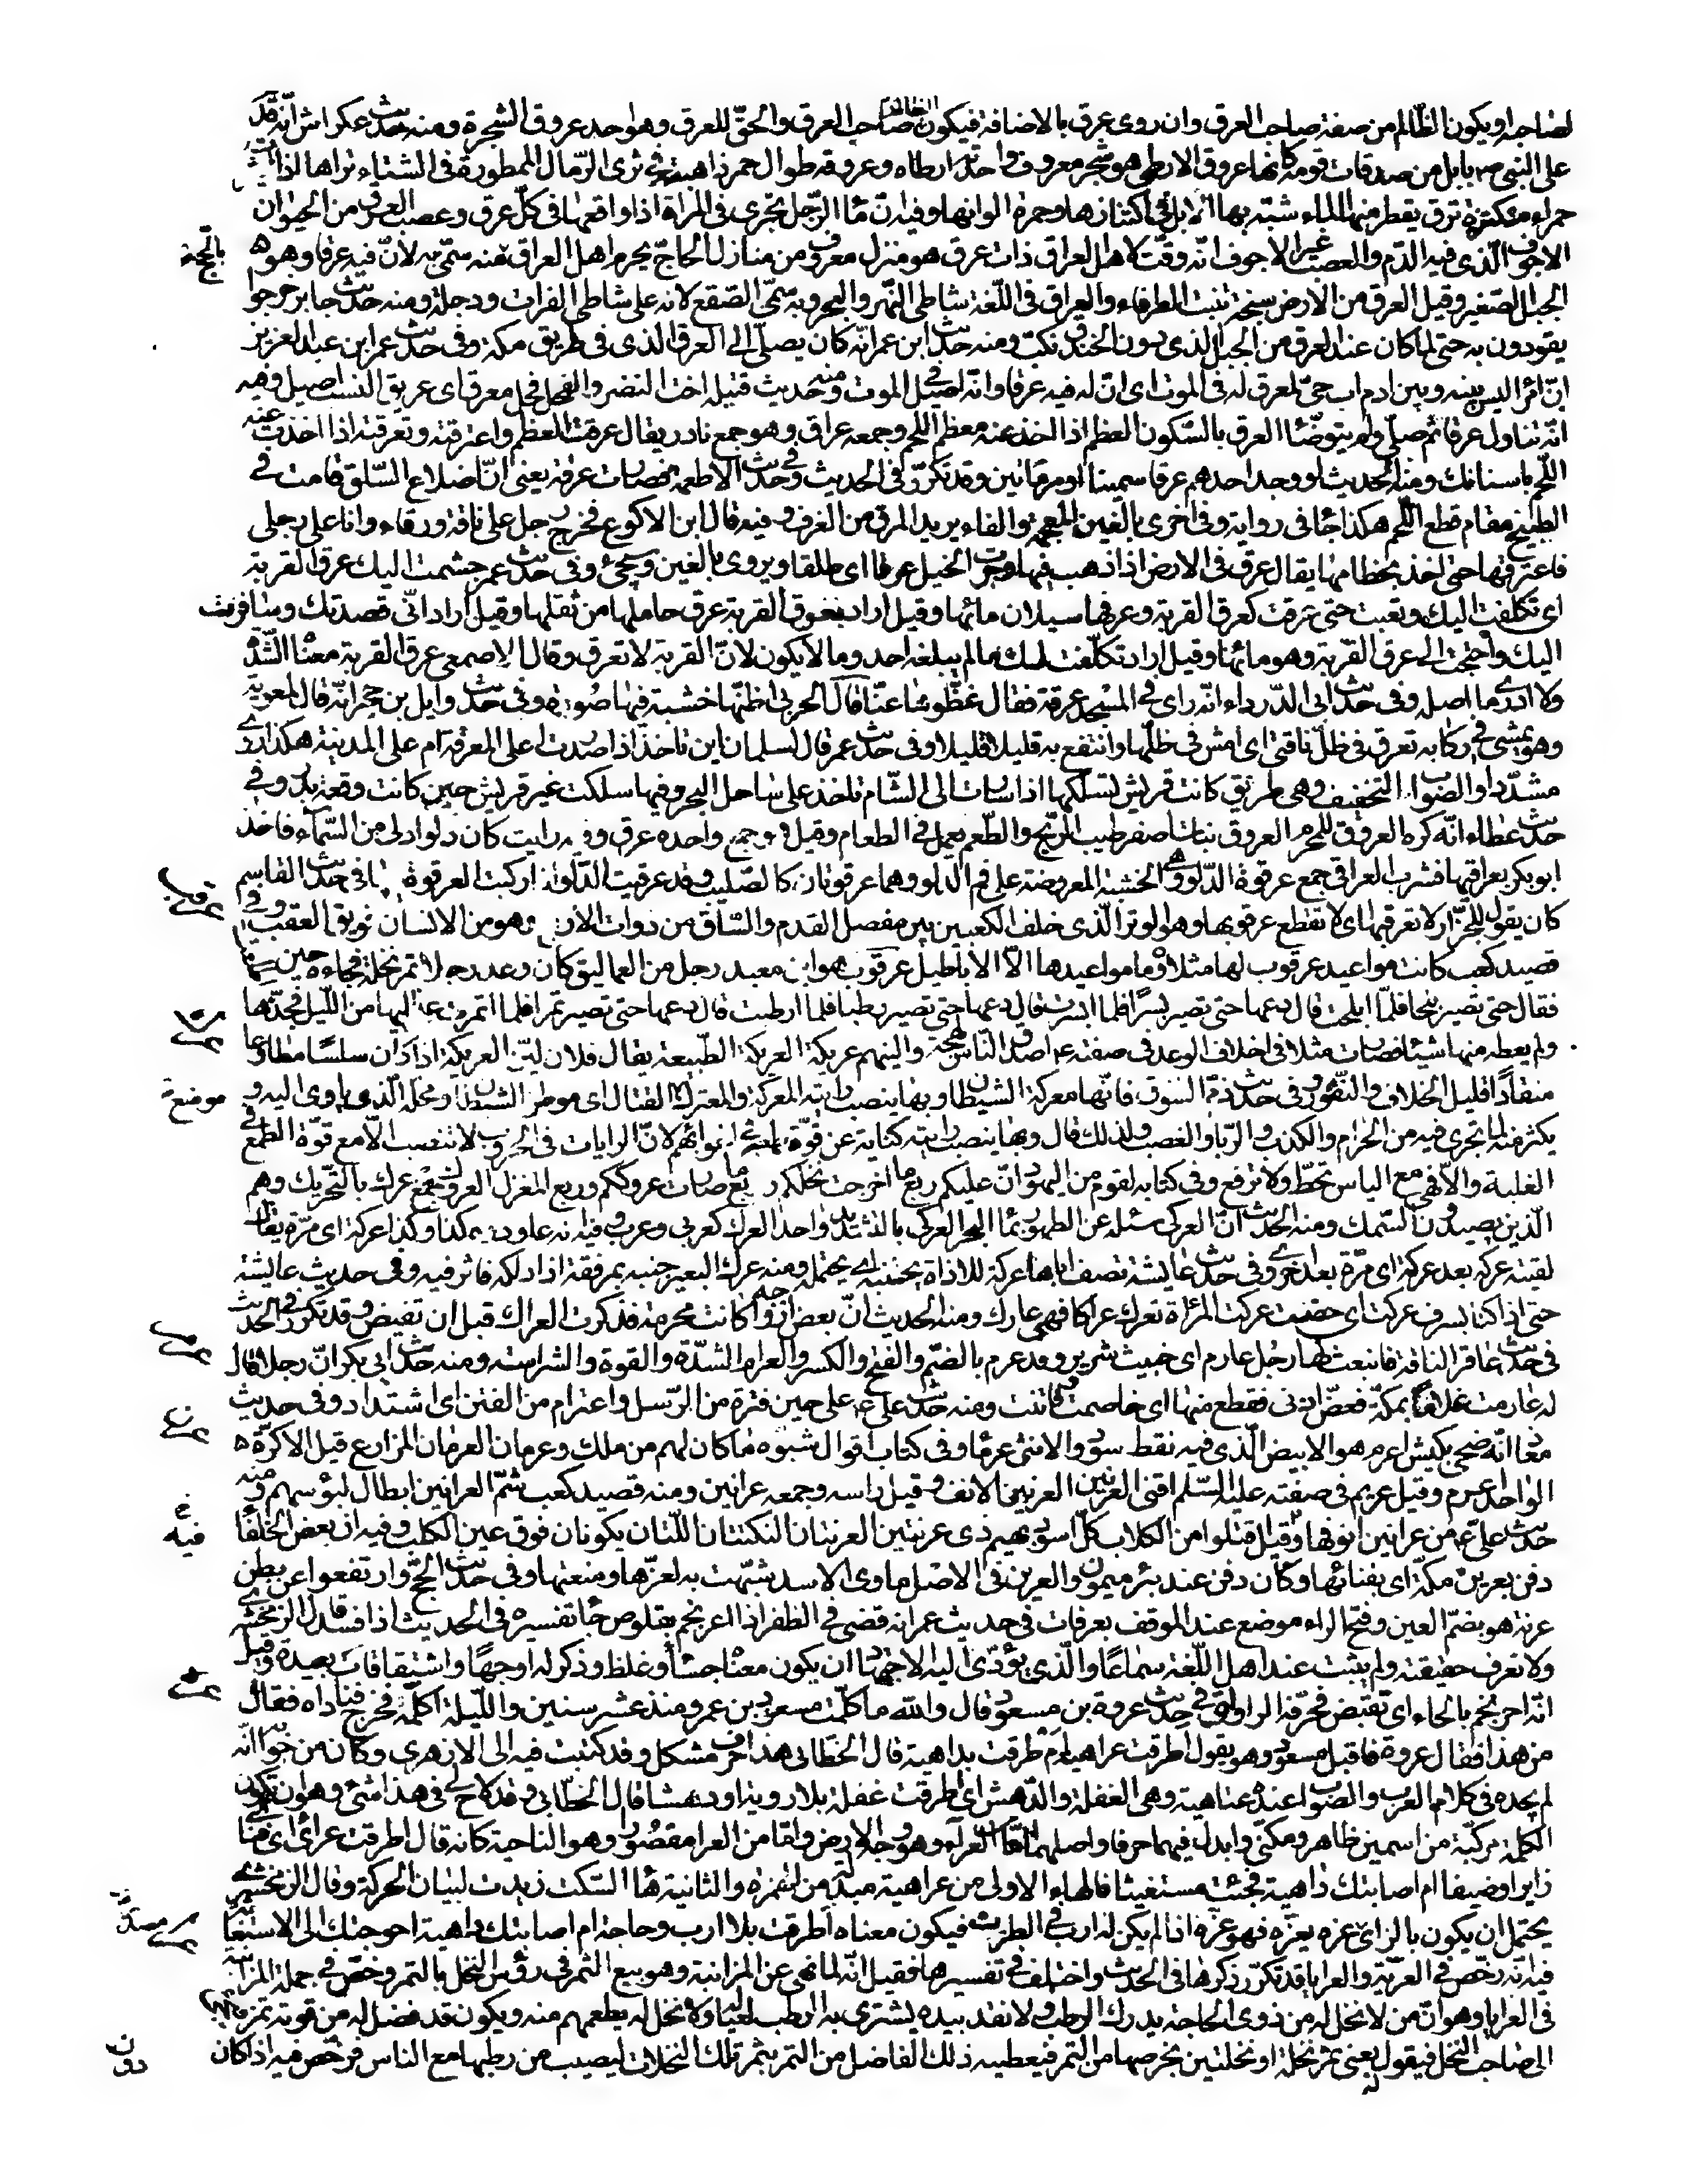 لصاحبه او يكون الظالم من صفة صاحب العرق وان روى عرق بالاضافة فيكون الظالم صاحب العرق والحق للعرق وهو احد عروق الشجرة ومنه حديث عكراش انه قدم
على النبي ص بابل من صدقات قومه كانها عروق الارطى هو شجر معروف واحدته ارطاه وعروقه طوال حمر ذاهبة في ثرى الرمال الممطورة في الشتاء تراها اذا
حمراء مكتنزة ترق يقطر منها الماء شبه بها الابل في اكتنازها وحمرة الوانها وفيه ان ماء الرجل يجرى في المراة اذا واقعها في كل عرق وعصب العرق من الحيوان
الاجوف الذى فيه الدم والعصب غير الاجوف انه وقت لاهل العراق ذات عرق هو منزل معروف من منازل الحاج يحرم اهل العراق منه سمى به لان فيه عرقا وهو
الجبل الصغير وقيل العرق من الارض سبخة تنبت الطرفاء والعراق في اللغة شاطئ النهر والبحر وبه سمى الصقع لانه على شاطى الفرات ودجلة ومنه حديث جابر خرجوا
يقودون به حتى لما كان عند العرق من الجبل الذى دون الخندق نكب ومنه حديث ابن عمر انه كان يصلى الى العرق الذى في طريق مكة وفي حديث عمر ابن عبد العزيز
ان امرا ليس بينه وبين ادم اب حى لمعرق له في الموت اى ان له فيه عرقا وانه اصيل في الموت ومنه حديث قتيلة اخت النضر والفحل فحل معرق اى عريق النسب اصيل وفيه
انه تناول عرقا ثم صلى ولم يتوضا العرق بالسكون العظم اذا اخذ عنه معظم اللحم وجمعه عراق وهو جمع نادر يقال عرقت العظم واعترقته وتعرقته اذا اخذت عنه
اللحم باسنانك ومنه الحديث لو وجد احدهم عرقا سمينا او مرماتين وقد تكرر في الحديث وفي حديث الاطعمة فصارت عرقه يعنى ان اضلاع السلق قامت في
الطبيخ مقام قطع اللحم هكذا جا في رواية وفي اخرى بالغين المعجمة والفاء يريد المرق من الغرف وفيه قال ابن الاكوع فخرج رجل على ناقة ورقاء وانا على رجلى
فاعترقها حتى اخذ بخطامها يقال عرق في الارض اذا ذهب فيها وجرت الخيل عرقا اى طلقا ويروى بالغين وسيجئ وفي حديث عمر جشمت اليك عرق القربة
اى تكلفت اليك وتعبت حتى عرقت كعرق القربة وعرقها سيلان مائها وقيل اراد بعرق القربة عرق حاملها من ثقلها وقيل اراد انى قصدتك وسافرت
اليك واحتجت الى عرق القربة وهو مائها وقيل اراد تكلفت لك ما لم يبلغه احد وما لا يكون لان القربة لا تعرق وقال الاصمعى عرق القربة معناه الشدة
ولا ادرى ما اصله وفي حديث ابى الدرداء انه راى في المسجد عرقة فقال غطوها عنا قال الحربى اظنها خشبة فيها صورة وفي حديث وايل بن حجر انه قال لمعوية
وهو يمشى في ركابه تعرق في ظل ناقتى اى امش في ظلها وانتفع به قليلا قليلا وفي حديث عمر قال لسلمان اين تاخذ اذا صدرت اعلى المعرقة ام على المدينة هكذا روى
مشددا والصواب التخفيف وهى طريق كانت قريش تسلكها اذا سارت الى الشام تاخذ على ساحل البحر وفيها سلكت عير قريش حين كانت وقعة بدر وفي
حديث عطاء انه كره العروق للمحرم العروق نبات اصفر طيب الريح والطعم يعمل في الطعام وقيل هو جمع واحده عرق وفيه رايت كان دلوا دلى من السماء فاخذ
ابو بكر بعراقيها فشرب العراقى جمع عرقوة الدلو وهى الخشبة المعروضة على فم الدلو وهما عرقوتان كالصليب وقد عرقيت الدلو اذا ركبت العرقوة في حديث القاسم
كان يقول للجزار لا تعرقبها اى لا تقطع عرقوبها وهو الوتر الذى خلف الكعبين بين مفصل القدم والساق من ذوات الاربع وهو من الانسان فويق العقب وفي
قصيد كعب كانت مواعيد عرقوب لها مثلا وما مواعيدها الا الاباطيل عرقوب هو ابن معبد رجل من العماليق كان وعد رجلا ثمر نخلة فجاءه حين
فقال حتى تصير بلحا فلما ابلحت قال دعها حتى تصير بسرا فلما ابسرت قال دعها حتى تصير رطبا فلما ارطبت قال دعها حتى تصير تمرا فلما اتمرت عمد اليها من الليل فجدها
ولم يعطه منها شيئا فصارت مثلا في اخلاف الوعد في صفته ع اصدق الناس لهجة والينهم عريكة العريكة الطبيعة يقال فلان لين العريكة اذا كان سلسا مطاوعا
منقادا قليل الخلاف والنفور وفي حديث ذم السوق فانها معركة الشيطان وبها ينصب رايته المعركة والمعترك موضع القتال اى موطن الشيطان ومحله الذى ياوى اليه و
يكثر منه لما يجرى فيه من الحرام والكذب والربا والغصب ولذلك قال وبها ينصب رايته كناية عن قوة طمعه في اغوائهم لان الرايات في الحروب لا تنصب الا مع قوة الطمع في
الغلبة والا فهى مع الياس تحط ولا ترفع وفي كتابه لقوم من اليهود ان عليكم ربع ما اخرجت نخلكم وربع ما صادت عروككم وربع المغزل العروك جمع عرك بالتحريك وهم
الذين يصيدون السمك ومنه الحديث ان العركى سئله عن الطهور بماء البحر العركى بالتشديد واحد العرك كعربى وعرب وفيه انه عاوده كذا وكذا عركة اى مرة يقال
لقيته عركة بعد عركة اى مرة بعد اخرى وفي حديث عايشة تصف اباها عركة للاذاة بجنبه اى يحتمله ومنه عرك البعير جنبه بمرفقه اذا دلكه فاثر فيه وفي حديث عايشة
حتى اذا كنا بسرف عركت اى حضت عركت المراة تعرك عراكا فهى عارك ومنه الحديث ان بعض ازواجه كانت محرمة فذكرت العراك قبل ان تفيض وقد تكرر في الحديث
في حديث عاقر الناقة فانبعث لها رجل عارم اى خبيث شرير وقد عرم بالضم والفتح والكسر والعرام الشدة والقوة والشراسة ومنه حديث ابى بكر ان رجلا قال
له عارمت غلاما بمكة فعض اذنى فقطع منها اى خاصمت وفاتنت ومنه حديث على ع على حين فترة من الرسل واعترام من الفتن اى اشتداد وفي حديث
معاذ انه ضحى بكبش اعرم هو الابيض الذى فيه نقط سود والانثى عرما وفي كتاب اقوال شبوه ما كان لهم من ملك وعرمان العرمان المزارع قيل الاكرة
الواحد اعرم وقيل عريم في صفته عليه السلم اقنى العرنين العرنين الانف وقيل راسه وجمعه عرانين ومنه قصيد كعب شم العرانين ابطال لبوسهم ومنه
حديث على ع من عرانين انوفها وفيه اقتلوا من الكلاب كل اسود بهيم ذى عرنتين العرنتان النكتتان اللتان يكونان فوق عين الكلب وفيه ان بعض الخلفا
دفن بعرين مكة اى بفنائها وكان دفن عند بئر ميمون والعرين في الاصل ماوى الاسد شبهت به لعزها ومنعتها وفي حديث الحج وارتفعوا عن بطن
عرنة هو بضم العين وفتح الراء موضع عند الموقف بعرفات في حديث عمر انه قضى في الظفر اذا اعرنجم بقلوص جا تفسيره في الحديث اذا فسد قال الزمخشرى
ولا تعرف حقيقته ولم يثبت عند اهل اللغة سماعا والذى يؤدى اليه الاجتهاد ان يكون معناه جسا وغلظ وذكر له اوجها واشتقاقات بعيدة وقيل
انه احرنجم بالحاء اى تقبض فحرفه الراواة في حديث عروة بن مسعود قال والله ما كلمت مسعود بن عمرو منذ عشر سنين والليلة اكلمه فخرج فناداه فقال
من هذا فقال عروة فاقبل مسعود وهو يقول اطرقت عراهيه ام طرقت بداهية قال الخطابى هذا حرف مشكل وقد كتبت فيه الى الازهرى وكان من جوابه انه
لم يجده في كلام العرب والصواب عنده عتاهية وهى الغفلة والدهش اى اطرقت غفلة بلا روية او دهشا قال الخطابى وقد لاح لى في هذا شئ وهو ان تكون
الكلمة مركبة من اسمين ظاهر ومكنى وابدل فيهما حرفا واصلهما اما من العراء وهو وجه الارض واما من العرا مقصورا وهو الناحية كانه قال اطرقت عرائى اى فنائى
زايرا وضيفا ام اصابتك داهية فجئت مستغيثا فالهاء الاولى من عراهية مبدلة من الهمزة والثانية هاء السكت زيدت لبيان الحركة وقال الزمخشرى
يحتمل ان يكون بالزاى عزه يعزه فهو عزه اذا لم يكن له ارب في الطرب فيكون معناه اطرقت بلا ارب وحاجة ام اصابتك داهية احوجتك الى الاستغاثة
فيه انه رخص في العرية والعرايا قد تكرر ذكرها في الحديث واختلف في تفسيرها فقيل انه لما نهى عن المزابنة وهو بيع الثمر في رؤس النخل بالتمر رخص في جملة المزابنة
في العرايا وهو ان من لا نخل له من ذوى الحاجة يدرك الرطب ولا نقد بيده يشترى به الرطب لعياله ولا نخل له يطعمهم منه ويكون قد فضل له من قوته تمر فيجئ
الى صاحب النخل فيقول له بعنى ثمر نخلة او نخلتين بخرصها من التمر فيعطيه ذلك الفاضل من التمر بثمر تلك النخلات ليصيب من رطبها مع الناس فرخص فيه اذا كان
دون